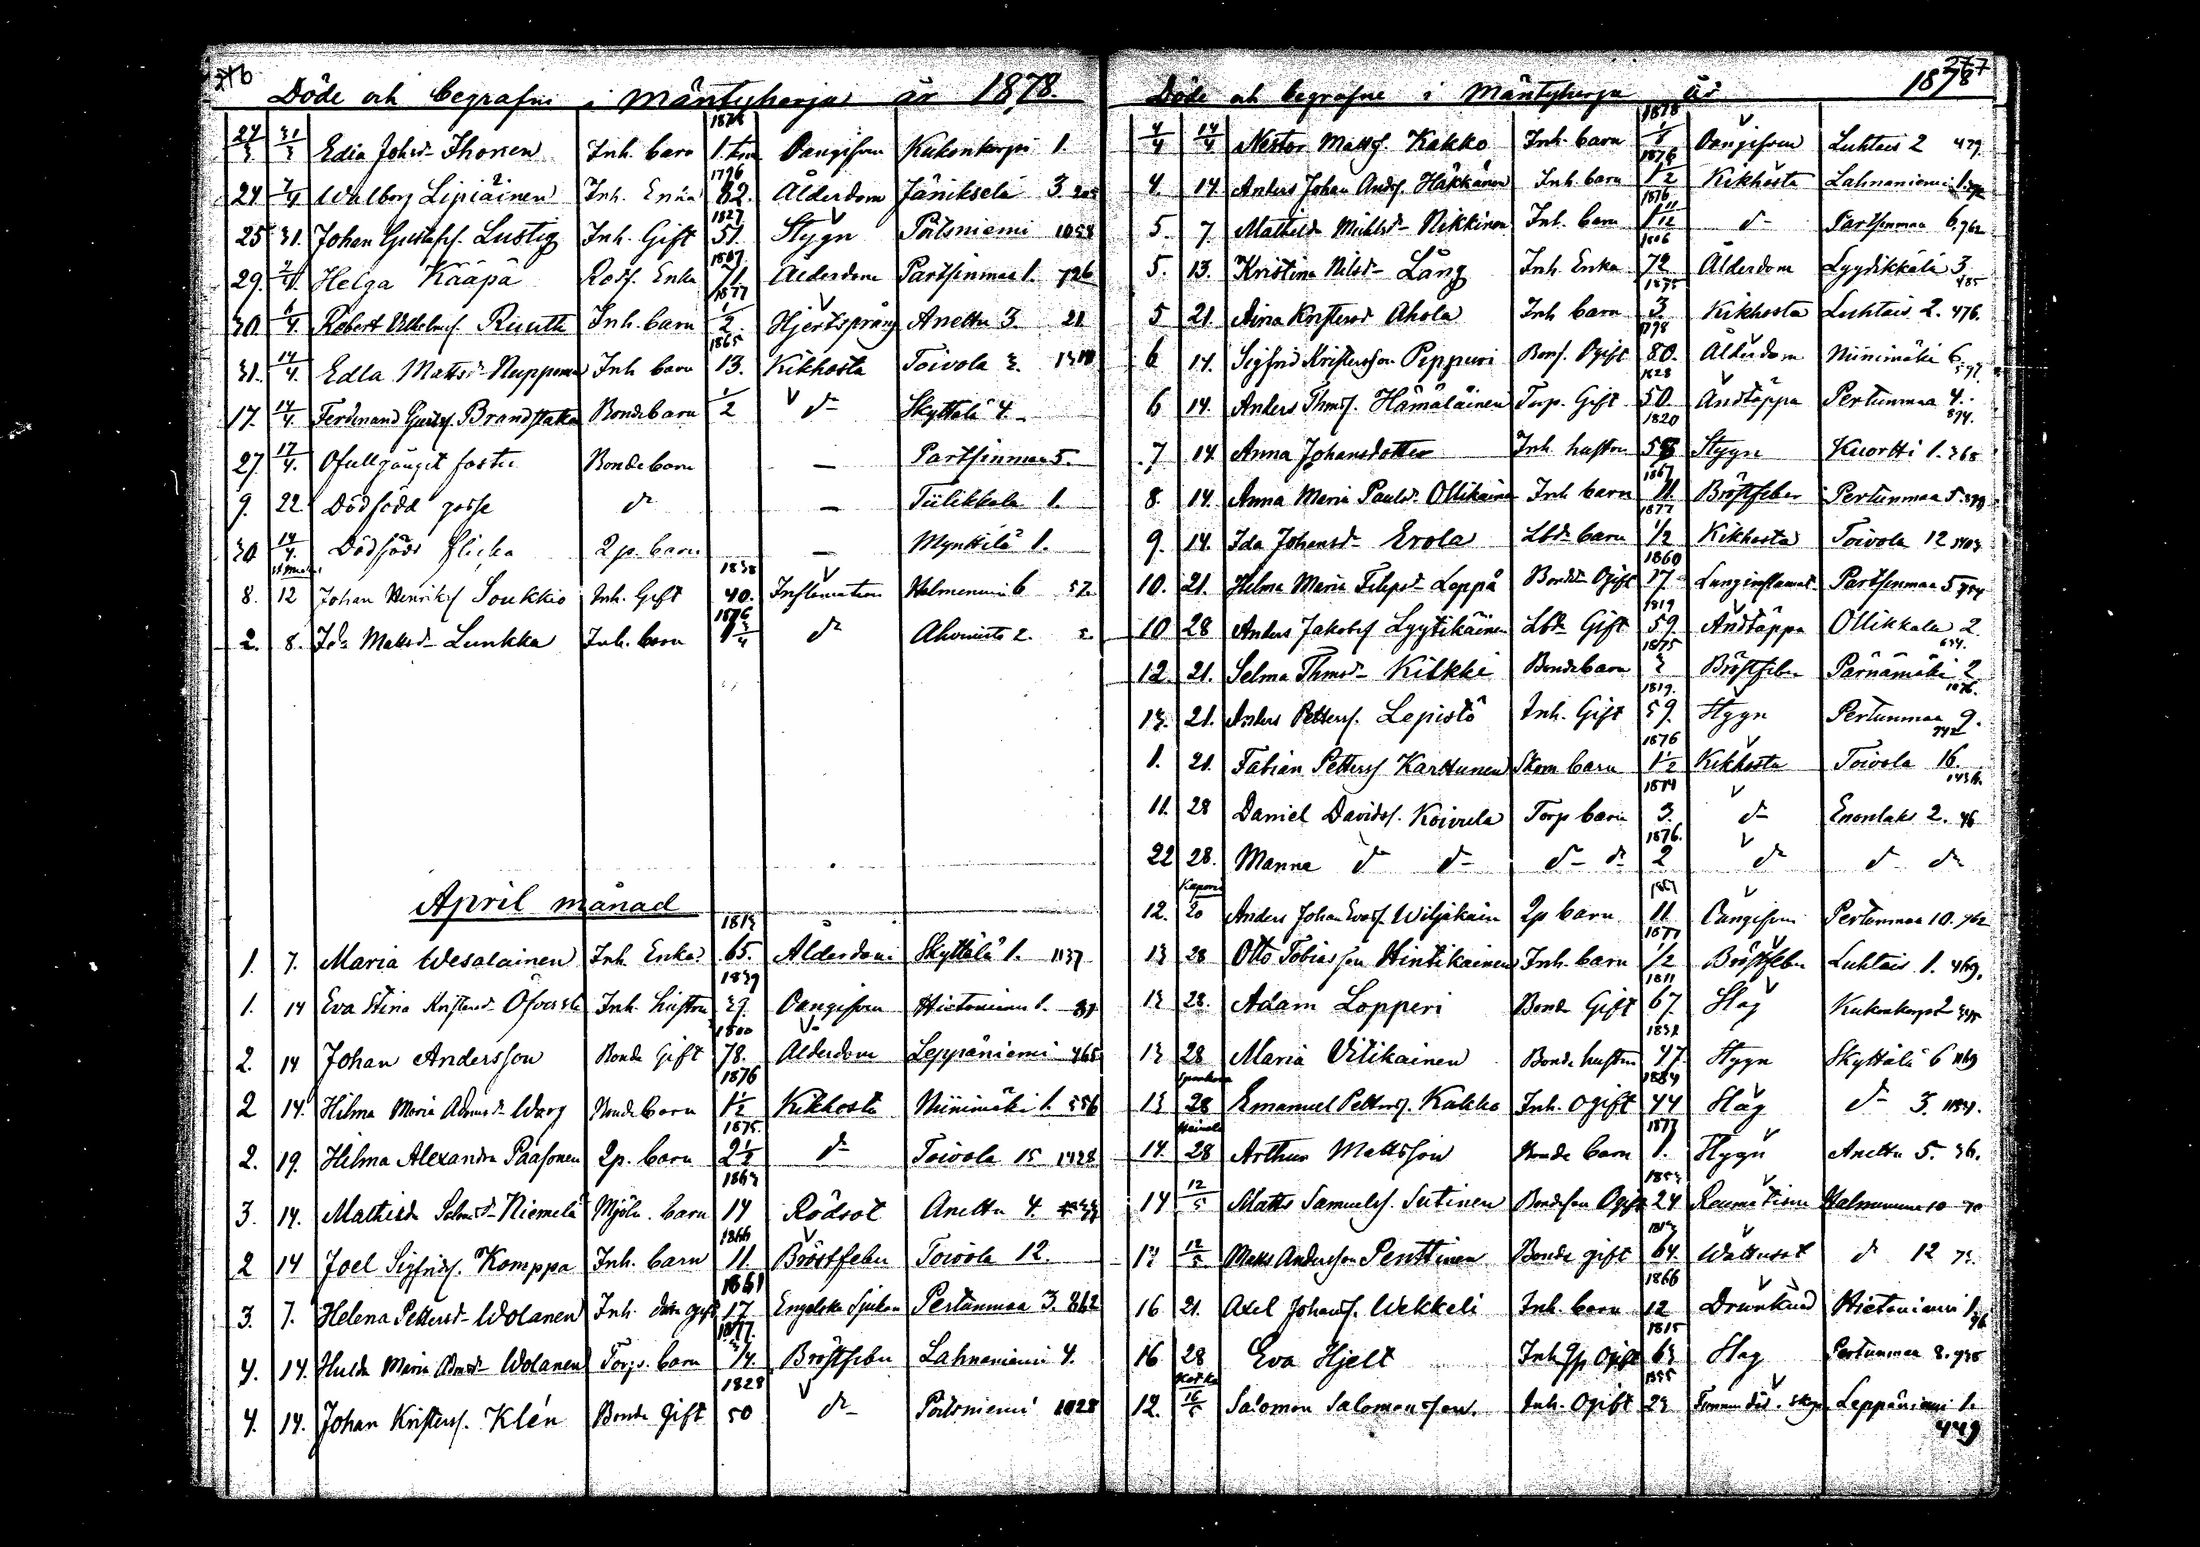 276
Döde och begrafne i Mäntyharju år 1878.
27/3 31/3 Edia Johsd. Ihonen Inh. barn 1878 1 tim Oangifven Kukonkorpi 1.
24 7/4 Walborg Lipiäinen Inh. Enka 1796 82. Ålderdom Jänikselä 3.
25 31. Johan Gustafsf. Lustig Inh. Gift 1827 51. Stygn Pöitsniemi 1058
29. Helga Kääpä Enka 1807 71 Ålderdom Partsinmaa 1. 726
30. 6/4. Robert Vilhelmsf. Ruuth Inh. barn 1877 1/2. Hjertsprång Anettu 3. 21
31. 14/4. Edla Mattsd. Nupponen Inh. barn 1865 13. Kikhosta Toivola 3.
17. 14/4. Ferdinand Gustsf. Brandstaka Bondebarn 1/2 d- Skyttälä 4.
27. 17/4. Ofullgånget foster Bondebarn — Partsinmaa 5.
9. 22 Dödfödd gosse d- — Tiilikkala 1.
30 14/4. Dödfödd flicka 2 p. barn — Mynttilä 1.
8. 12 Johan Henriksf. Soukkio Inh. Gift 1838 40. Inflamation Halmeniemi 6
2. 8. Ida Mattsd. Lunkka Inh. barn 1876 1 3/4 d- Ahvenisto 2.
April månad
1. 7. Maria Wesalainen Inh. Enka 1813 65. Ålderdom Skyttälä 1. 1137
1. 14 Eva Stina Kristersd. Öfversti Inh. hustru 1839 39. Oangifven Hietaniemi 1.
2. 14 Johan Andersson Bonde Gift 1800 78. Ålderdom Leppäniemi 465
2 14. Hilma Maria Adamsd. Warg Bonde barn 1876 1 1/2 Kikhosta Niinimäki 1. 556
2. 19. Hilma Alexandra Paasonen 2p. barn 1875. 2 1/2 d- Toivola 15 1428
3. 14. Mathilda Salomsd. Niemelä Mjöln. barn 1863 14 Rödsot Anettu 4.
2 14 Joel Sigfridsf. Komppa Inh. barn 1866 11. Bröstfeber Toivola 12.
3. 7. Helena Pettersd. Wolanen Inh. 1861 17 Engelska Sjukan Pertunmaa 3. 862
4. 14. Hulda Maria Admsd. Wolanen Torp. barn 1877. 3/4. Bröstfeber Lahnaniemi 4.
4. 14. Johan Kristersf. Klén Bonde Gift 1828 50 d- Pöitsniemi 1028
277
Döde och begrafne i Mäntyharju år 1878
4/4 14/4 Nestor Mattsf. Kakko Inh. barn 1878 Oangifven Luhtais 2 479.
4. 14 Anders Johan Andsf. Häkkänen Inh. barn 1876 1 1/2 Kikhosta Lahnaniemi 1.
5. 7. Mathilda Mickelsd. Nikkinen Inh. barn 1876 1 11/12 d- Partsinmaa 6. 762
5. 13. Kristina Nilsd. Lång Inh. Enka 1806 72 Ålderdom Lyydikkälä 3. 485
5 21. Aina Kristersd. Ahola Inh. barn 1875 3. Kikhosta Luhtais 2. 476.
6 14. Sigfrid Kristersson Pippuri Bonf. Ogift 1798 80. Ålderdom Niinimäki 6.
6 14. Anders Thmsf. Hämäläinen Torp. Gift 1828 50 Andtäppa Pertunmaa 4. 874.
7 14. Anna Johansdotter Inh. hustru 1820 58 Stygn Kuortti 1. 368
8. 14. Anna Maria Paulsd. Ollikainen Inh. barn 1867 11. Bröstfeber Pertunmaa 5.
9. 14. Ida Johansd. Erola Lbd. barn 1877 1/2 Kikhosta Toivola 12
10. 21. Helma Maria Filipsd. Leppä Ogift 1860 17 Lunginflamat. Partsinmaa 5 754
10 28 Anders Jakobsf. Lyytikäinen Lbd. Gift 1819 59. Andtäppa Ollikkala 2
12. 21. Selma Thmsd. Kilkki Bondebarn 1875 3 Bröstfeber Pärnämäki 2
13. 21. Anders Pettersf. Lepistö Inh. Gift 1819. 59. Stygn Pertunmaa 9.
1. 21. Fabian Pettersf. Karttunen Skom barn 1876 1 1/2 Kikhosta Toivola 16.
11. 28 Daniel Davidsf. Koivula Torp barn 1874 3. d- Enonlaks 2. 46
22 28. Manne d d- d- d- 1876. 2 d- d- d-
12. 20 Anders Johan Evasf. Wiljakain 2p barn 1867 11. Oangifven Pertunmaa 10.
13 28 Otto Tobiasson Hintikainen Inh. barn 1877 1/2 Bröstfeber Luhtais 1. 469.
13 28. Adam Lopperi Bonde Gift 1811 67. Slag Kukonkorpi 2
13 28 Maria Vitikainen Bonde hustru 1831 47. Stygn Skyttälä 6
13 28 Emanuel Pettersf. Kakko Inh. Ogift 1834 44 Slag d- 3.
14. 28 Arthur Mattsson Bonde barn 1877 1. Stygn Anettu 5. 36.
14 12/5 Matts Samuelsf. Sutinen Bondeson Ogift 24 Reumatism Halmeniemi 10
17 12/5 Matts Andersson Penttinen Bonde gift 64. Wattusot d 12
16 21. Axel Johansf. Wekkeli Inh. barn 1866 12 Drunknad Hietaniemi 1.
16 28 Eva Hjelt Ogift 1815 63 Slag Pertunmaa 8. 938
12. 16/5 Salomon Salomonsson. Inh. Ogift 1855 23 Leppäniemi 1.
449